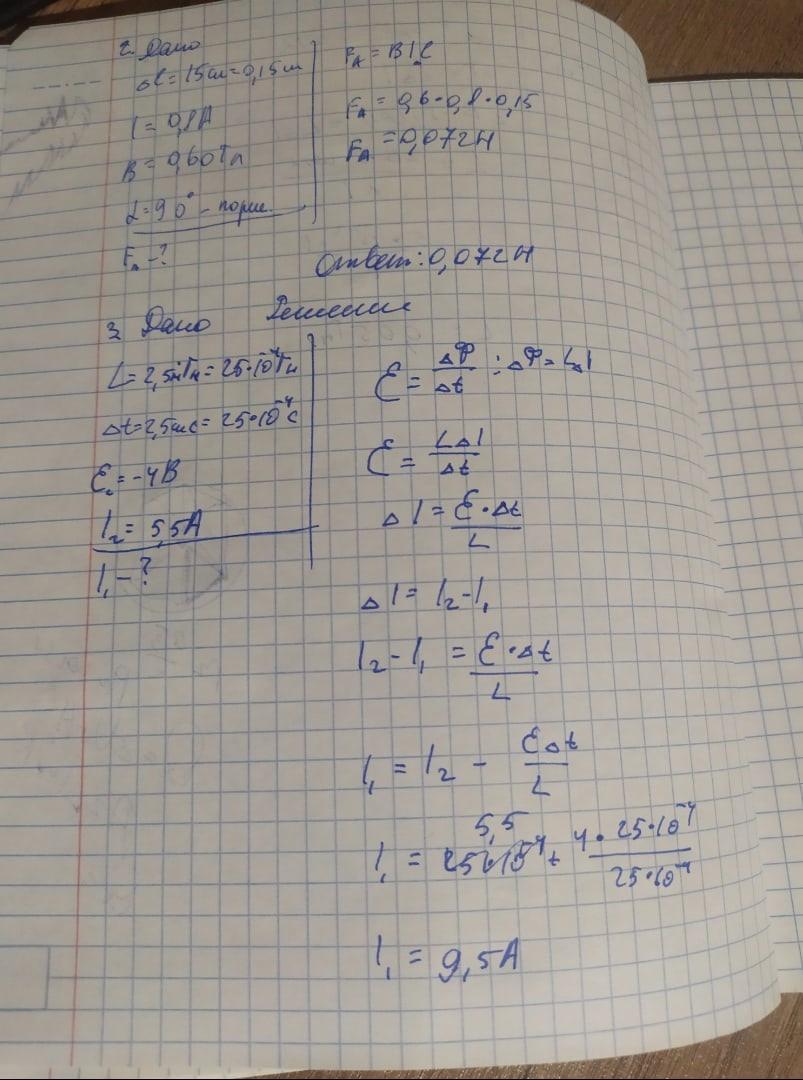 2. Дано
Δl = 15см = 0,15м
I = 0,8А
B = 0,60Тл
α = 90° -
Fₐ - ?
Fₐ = BIl
Fₐ = 0,6 · 0,8 · 0,15
Fₐ = 0,072Н
Ответ: 0,072Н
3. Дано Решение
L = 2,5мГн = 25·10⁻⁴Гн
Δt = 2,5мс = 25·10⁻⁴с
Ɛ = -4В
I₂ = 5,5А
I₁ - ?
Ɛ = ΔФ/Δt ; ΔФ = LΔI
Ɛ = LΔI/Δt
ΔI = Ɛ·Δt/L
ΔI = I₂ - I₁
I₂ - I₁ = Ɛ·Δt/L
I₁ = I₂ - ƐΔt/L
5,5
I₁ = + 4·25·10⁻⁴/25·10⁻⁴
I₁ = 9,5А